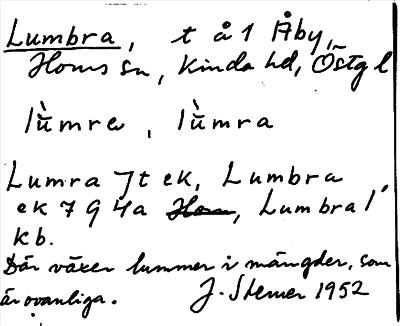 Lumbra, t å 1 Åby,
Horns sn, Kinda hd, Östg l
lùmra, lùmra
Lumra Jt ek, Lumbra
ek 794a Horn, Lumbra l
kb.
Där växer lummer i mängder, som
är ovanliga. J. Stemer 1952